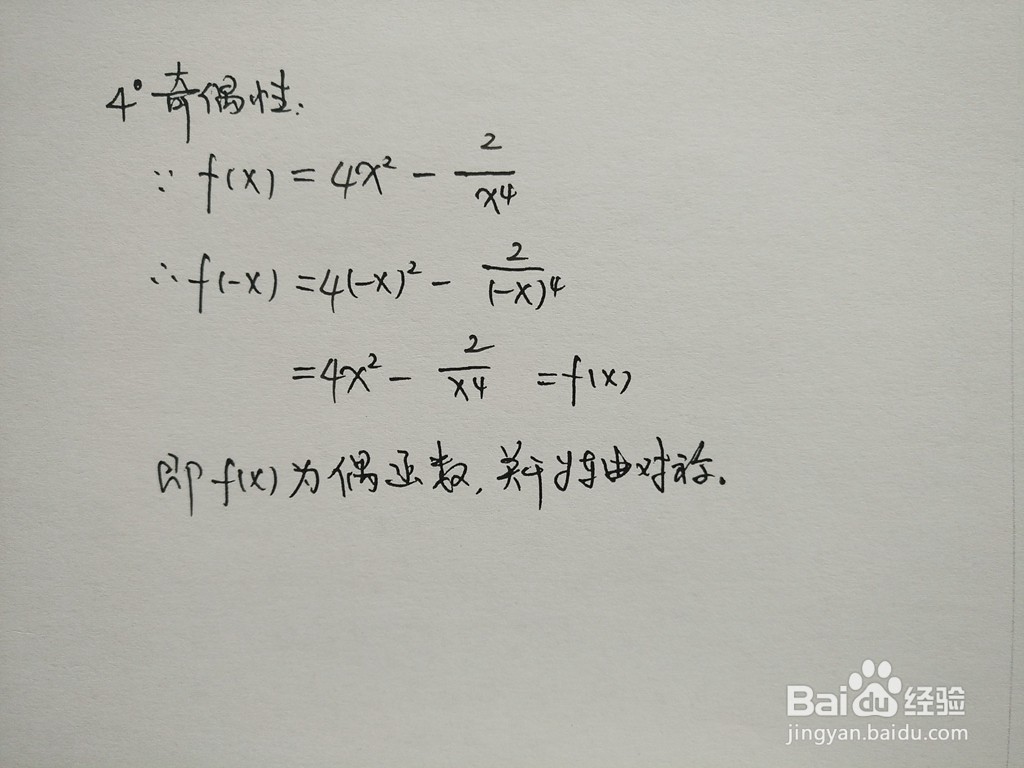 4° 奇偶性:
∵ f(x) = 4x² - 2/x⁴
∴ f(-x) = 4(-x)² - 2/(-x)⁴
= 4x² - 2/x⁴ = f(x)
即 f(x) 为偶函数, 关于y轴对称.
Baidu经验
jingyan.baidu.com